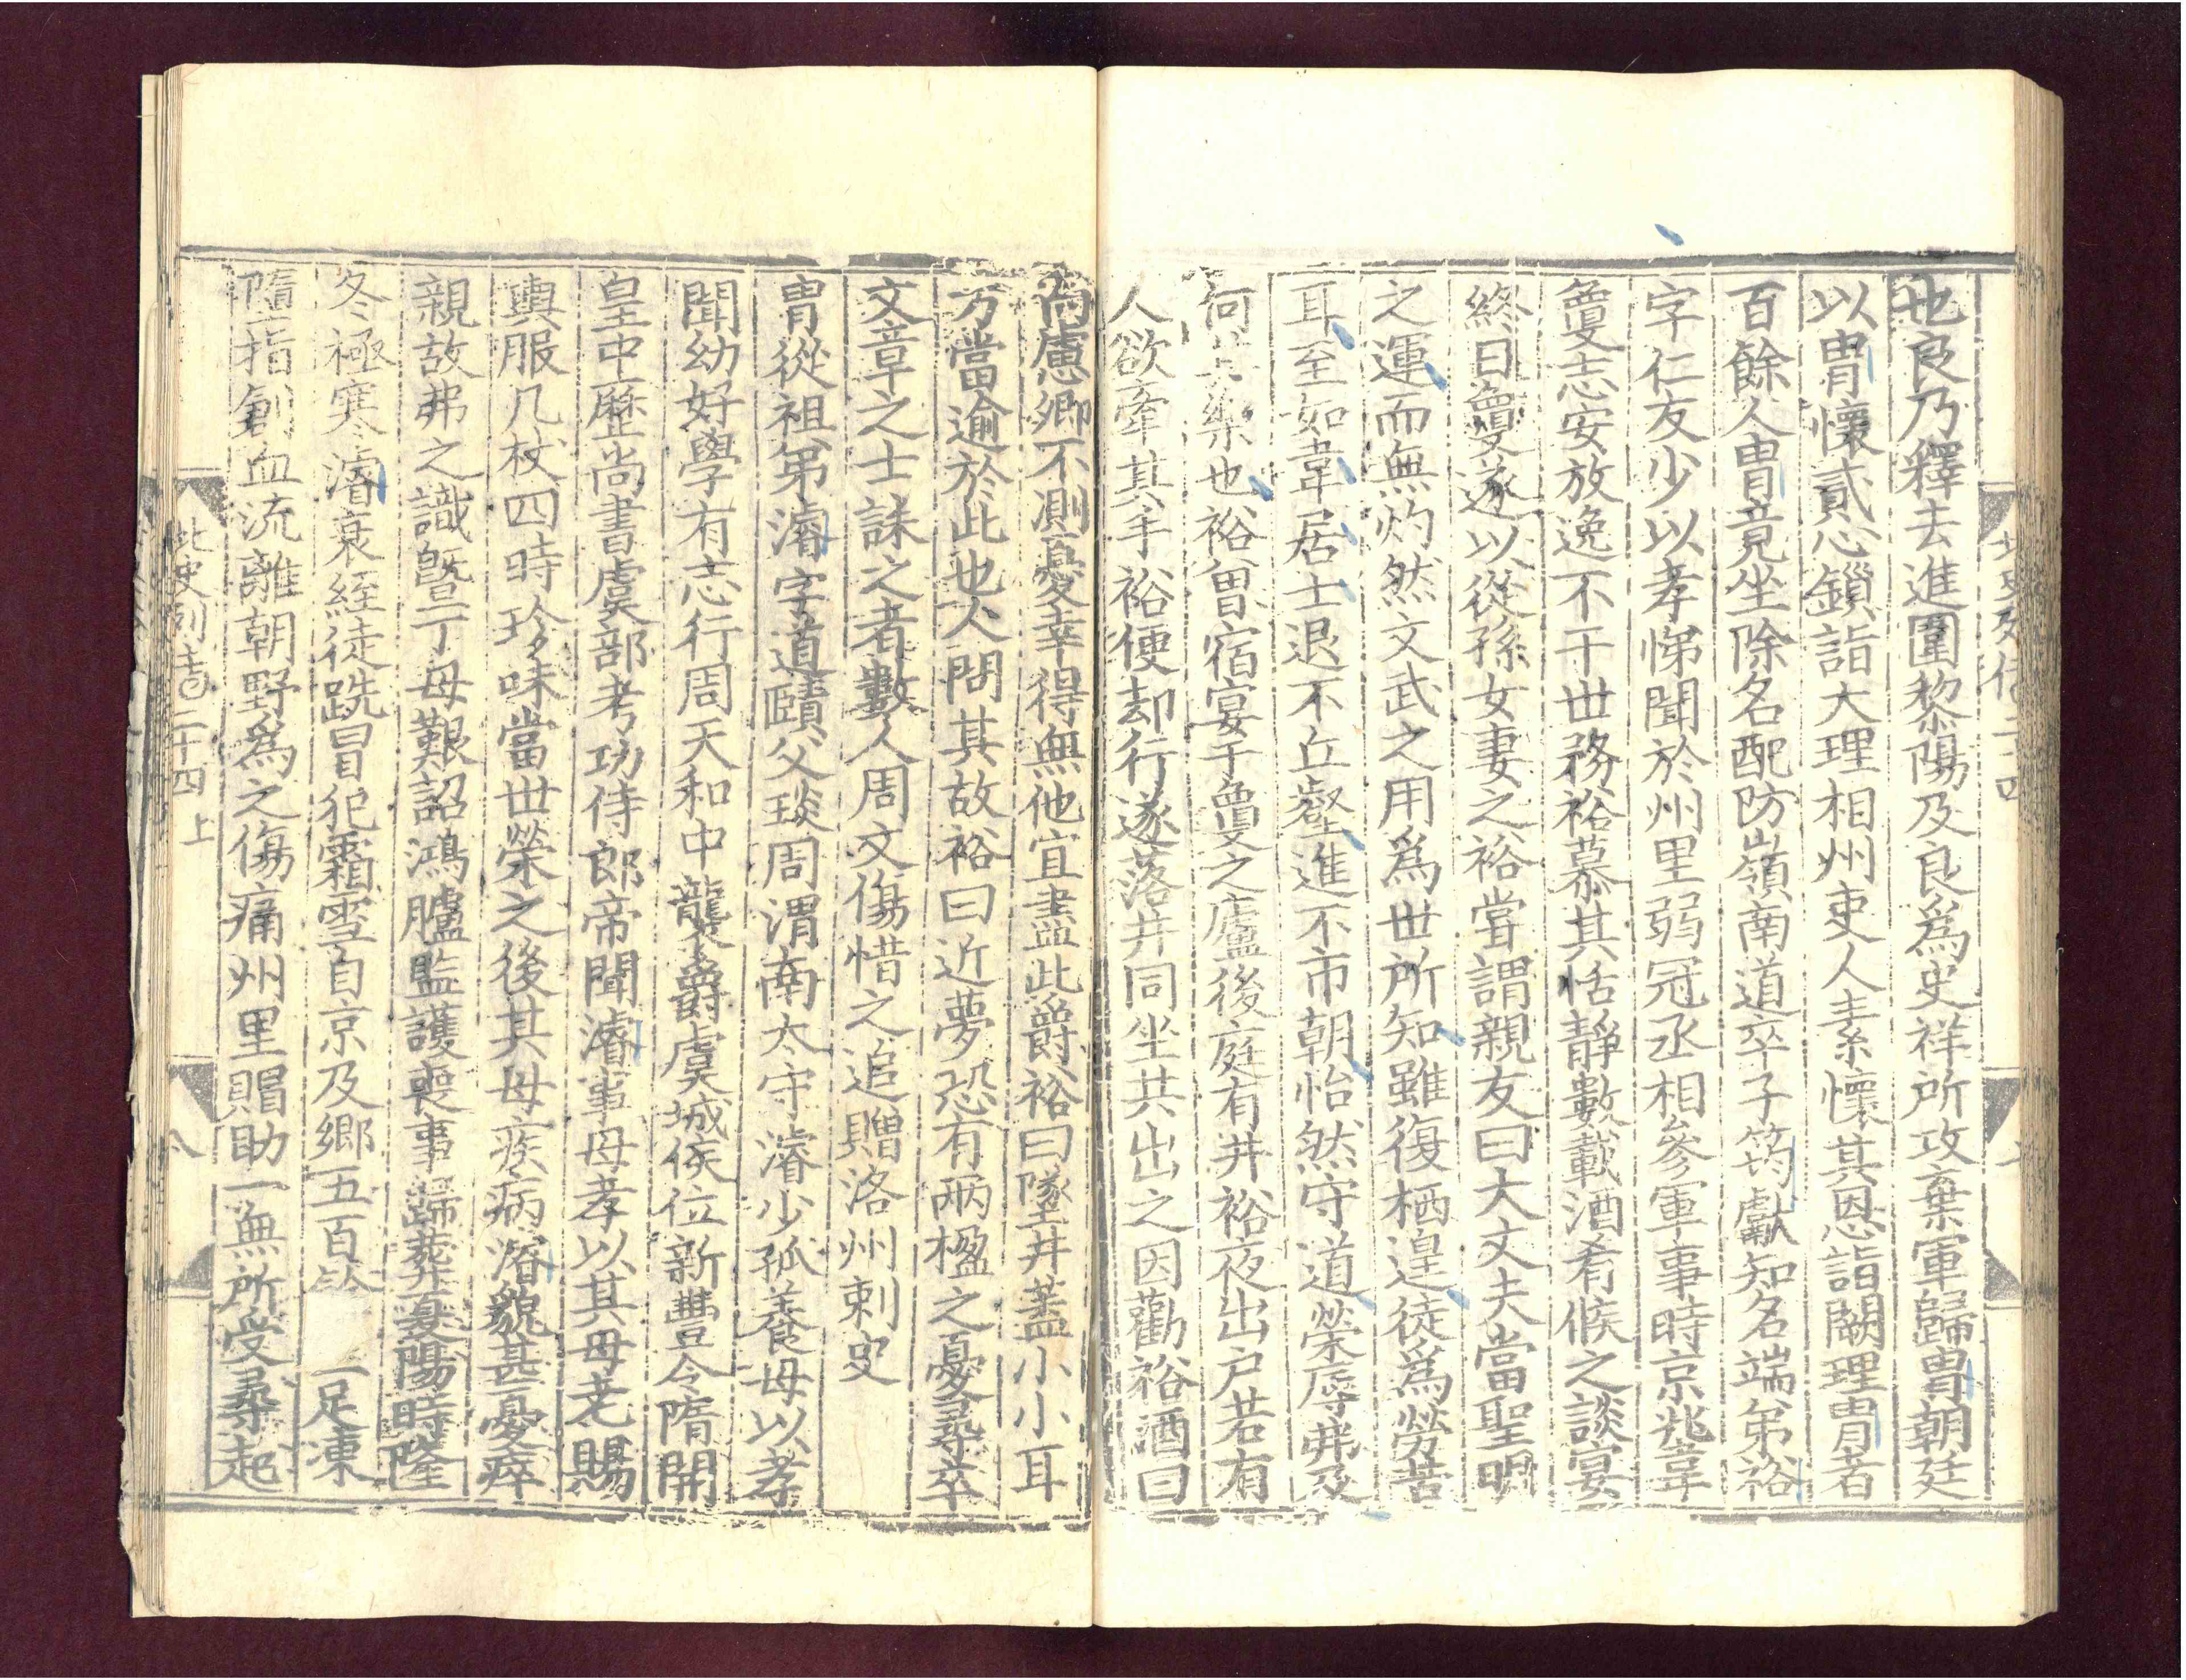 也良乃釋去進圍黎陽及良爲史祥所攻棄軍歸胄朝廷
以胄懷貳心鎖詣大理相州吏人素懷其恩詣闕理胄者
百餘人胄竟坐除名配防嶺南道卒子筠獻知名端弟裕
字仁友少以孝悌聞於州里弱冠丞相參軍事時京兆韋
敻志安放逸不干世務裕慕其恬靜數載酒肴候之談宴
終日敻遂以從孫女妻之裕嘗謂親友曰大丈夫當聖明
之運而無灼然文武之用爲世所知雖復栖遑徒爲勞苦
耳至如韋居士退不丘壑進不市朝怡然守道榮辱弗及
何其樂也裕曾宿宴于敻之廬後庭有井裕夜出户若有
人欲牽其手裕便却行遂落井同坐共出之因勸裕酒曰
向慮卿不測憂幸得無他宜盡此爵裕曰墜井蓋小小耳
方當逾於此也人問其故裕曰近夢恐有兩楹之憂尋卒
文章之士誄之者數人周文傷惜之追贈洛州刺史
胄從祖弟濬字道賾父琰周渭南太守濬少孤養母以孝
聞幼好學有志行周天和中襲爵虞城侯位新豐令隋開
皇中歷尚書虞部考功侍郎帝聞濬事母孝以其母老賜
輿服几杖四時珍味當世榮之後其母疾病濬貌甚憂瘁
親故弗之識曁丁母艱詔鴻臚監護喪事歸葬夏陽時隆
冬極寒濬衰絰徒跣冒犯霜雪自京及鄉五百餘 足凍
墮指創血流離朝野爲之傷痛州里賵助一無所受尋起
北史列傳二十四上
八